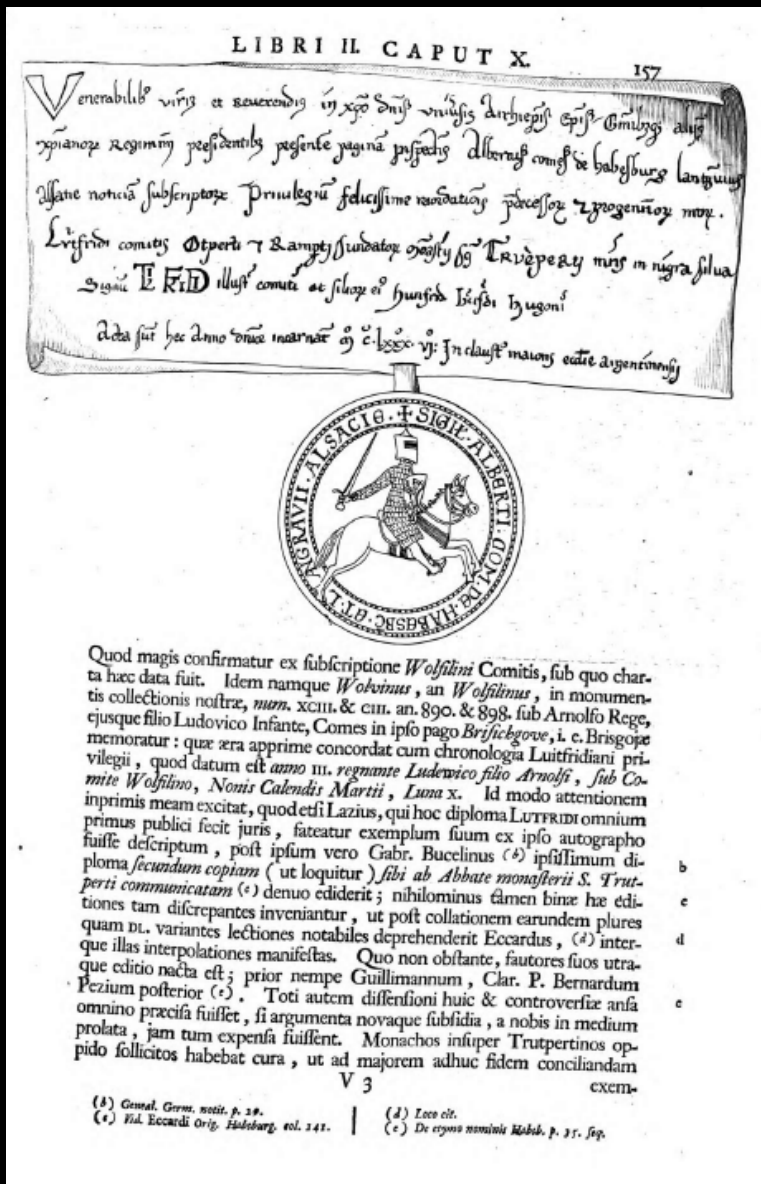 LIBRI II. CAPUT X.
157
Venerabilib⁹ viris et Reverendis in xpo
presidentib⁹ presente pagina Albert⁹ comes de habesburg lantgravius
Alsatie noticia subscriptor Privilegiu felicissime predecessor
comitis Otperti Rampti in nigra silva
Signu illust comit et filior ei⁹ hunfrid hugoni
Acta sut hec Anno In claust maioris ecclie argentinensis
✠ SIGIL. ALBERTI. COM. DE. HABESBC. ET. L. ANGRAVII. ALSACIE.
Quod magis confirmatur ex ſubſcriptione Wolfilini Comitis, ſub quo char-
ta hæc data fuit. Idem namque Wolvinus, an Wolfilinus, in monumen-
tis collectionis noſtræ, num. XCIII. & CIII. an. 890. & 898. ſub Arnolfo Rege,
ejusque filio Ludovico Infante, Comes in ipſo pago Briſichgove, i. e. Brisgojæ
memoratur : quæ æra apprime concordat cum chronologia Luitfridiani pri-
vilegii, quod datum eſt anno III. regnante Ludewico filio Arnolfi, ſub Co-
mite Wolfilino, Nonis Calendis Martii, Luna X. Id modo attentionem
inprimis meam excitat, quod etſi Lazius, qui hoc diploma LUTFRIDI omnium
primus publici fecit juris, fateatur exemplum ſuum ex ipſo autographo
fuiſſe deſcriptum, poſt ipſum vero Gabr. Bucelinus (b) ipſiſſimum di-
ploma ſecundum copiam ( ut loquitur ) ſibi ab Abbate monaſterii S. Trut-
perti communicatam (c) denuo ediderit ; nihilominus tamen binæ hæ edi-
tiones tam diſcrepantes inveniantur, ut poſt collationem earundem plures
quam DL. variantes lectiones notabiles deprehenderit Eccardus, (d) inter-
que illas interpolationes manifeſtas. Quo non obſtante, fautores ſuos utra-
que editio nacta eſt ; prior nempe Guillimannum, Clar. P. Bernardum
Pezium poſterior (e). Toti autem diſſenſioni huic & controverſiæ anſa
omnino præciſa fuiſſet, ſi argumenta novaque ſubſidia, a nobis in medium
prolata, jam tum expenſa fuiſſent. Monachos inſuper Trutpertinos op-
pido ſollicitos habebat cura, ut ad majorem adhuc fidem conciliandam
b
c
d
e
V 3
exem-
(b) Geneal. Germ. notit. p. 20.
(c) Vid. Eccardi Orig. Habsburg. col. 141.
(d) Loco cit.
(e) De etymo nominis Habsb. p. 35. ſeq.